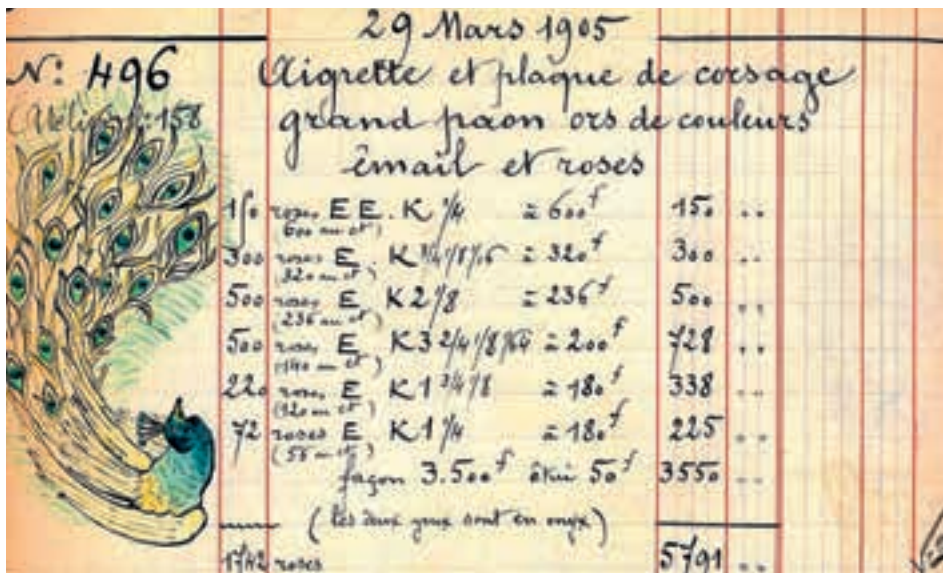 29 Mars 1905
N: 496 Aigrette et plaque de corsage
158 grand paon ors de couleurs
émail et roses
150 roses E E. K 1/4 à 600f 150 ..
(600 au ct)
300 roses E. K à 320f 300 ..
(320 au ct)
500 roses E K 2 1/8 à 236f 500 ..
(236 au ct)
500 roses E K 3 2/4 1/8 1/64 à 200f 728 ..
(140 au ct)
220 roses E K 1 3/4 1/8 à 180f 338 ..
au ct)
72 roses E K 1 1/4 à 180f 225 ..
au ct)
façon 3.500f étui 50f 3550 ..
(les deux yeux sont en onyx)
1742 roses 5791 ..